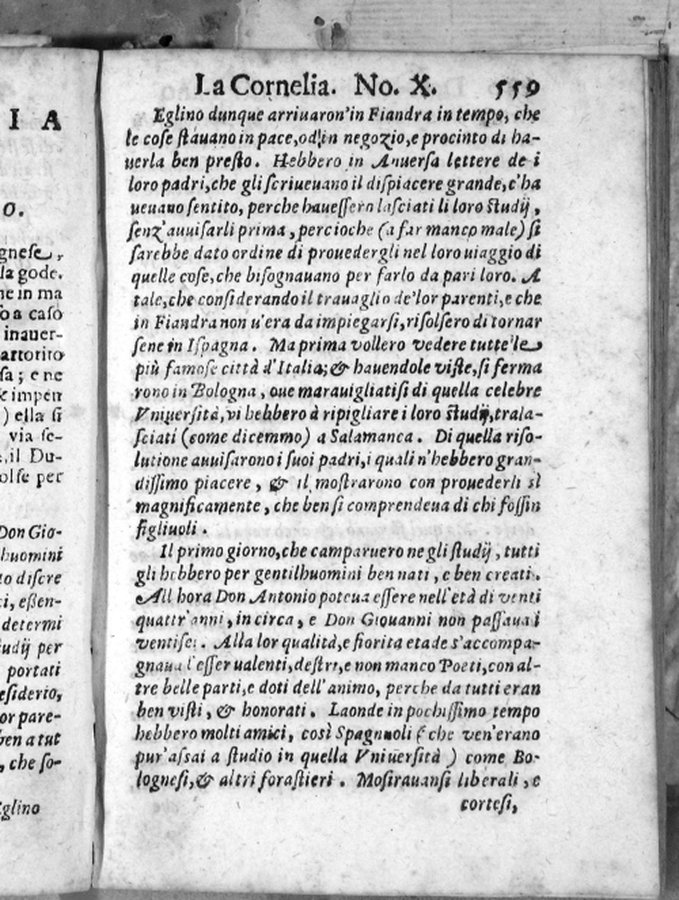 I A
o.
gnese,
la gode.
ne in ma
so a caso
inauer-
artorito
sa; e ne
& impeu
) ella si
via se-
, il Du-
olse per
Don Gio-
huomini
to discre
ci, eßen-
determi
tudij per
portati
esiderio,
or pare-
ben a tut
, che so-
Eglino
La Cornelia. No. X. 559
Eglino dunque arriuaron'in Fiandra in tempo, che
le cose stauano in pace, od in negozio, e procinto di ha-
uerla ben presto. Hebbero in Anuersa lettere de i
loro padri, che gli scriueuano il dispiacere grande, c'ha
ueuano sentito, perche hauessero lasciati li loro studij,
senz'auuisarli prima, percioche (a far manco male) si
sarebbe dato ordine di prouedergli nel loro uiaggio di
quelle cose, che bisognauano per farlo da pari loro. A
tale, che considerando il trauaglio de'lor parenti, e che
in Fiandra non u'era da impiegarsi, risolsero di tornar
sene in Ispagna. Ma prima vollero vedere tutte le
più famose città d'Italia; & hauendole viste, si ferma
rono in Bologna, oue marauigliatisi di quella celebre
Vniuersità, vi hebbero à ripigliare i loro studij, trala-
sciati (come dicemmo) a Salamanca. Di quella riso-
lutione auuisarono i suoi padri, i quali n'hebbero gran-
dissimo piacere, & il mostrarono con prouederli sì
magnificamente, che ben si comprendeua di chi fossin
figliuoli.
Il primo giorno, che camparuero ne gli studij, tutti
gli hebbero per gentilhuomini ben nati, e ben creati.
All hora Don Antonio poteua essere nell'età di venti
quattr'anni, in circa, e Don Giouanni non passaua i
ventisei. Alla lor qualità, e fiorita etade s'accompa-
gnaua l'esser ualenti, destri, e non manco Poeti, con al-
tre belle parti, e doti dell'animo, perche da tutti eran
ben visti, & honorati. Laonde in pochissimo tempo
hebbero molti amici, così Spagnuoli (che ven'erano
pur'assai a studio in quella Vniuersità) come Bo-
lognesi, & altri forastieri. Mostrauansi liberali, e
cortesi,